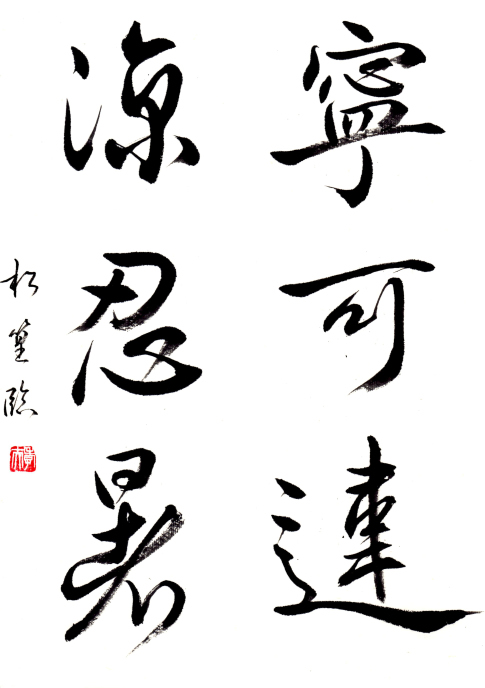 寧可違
涼忍暑
松篁臨